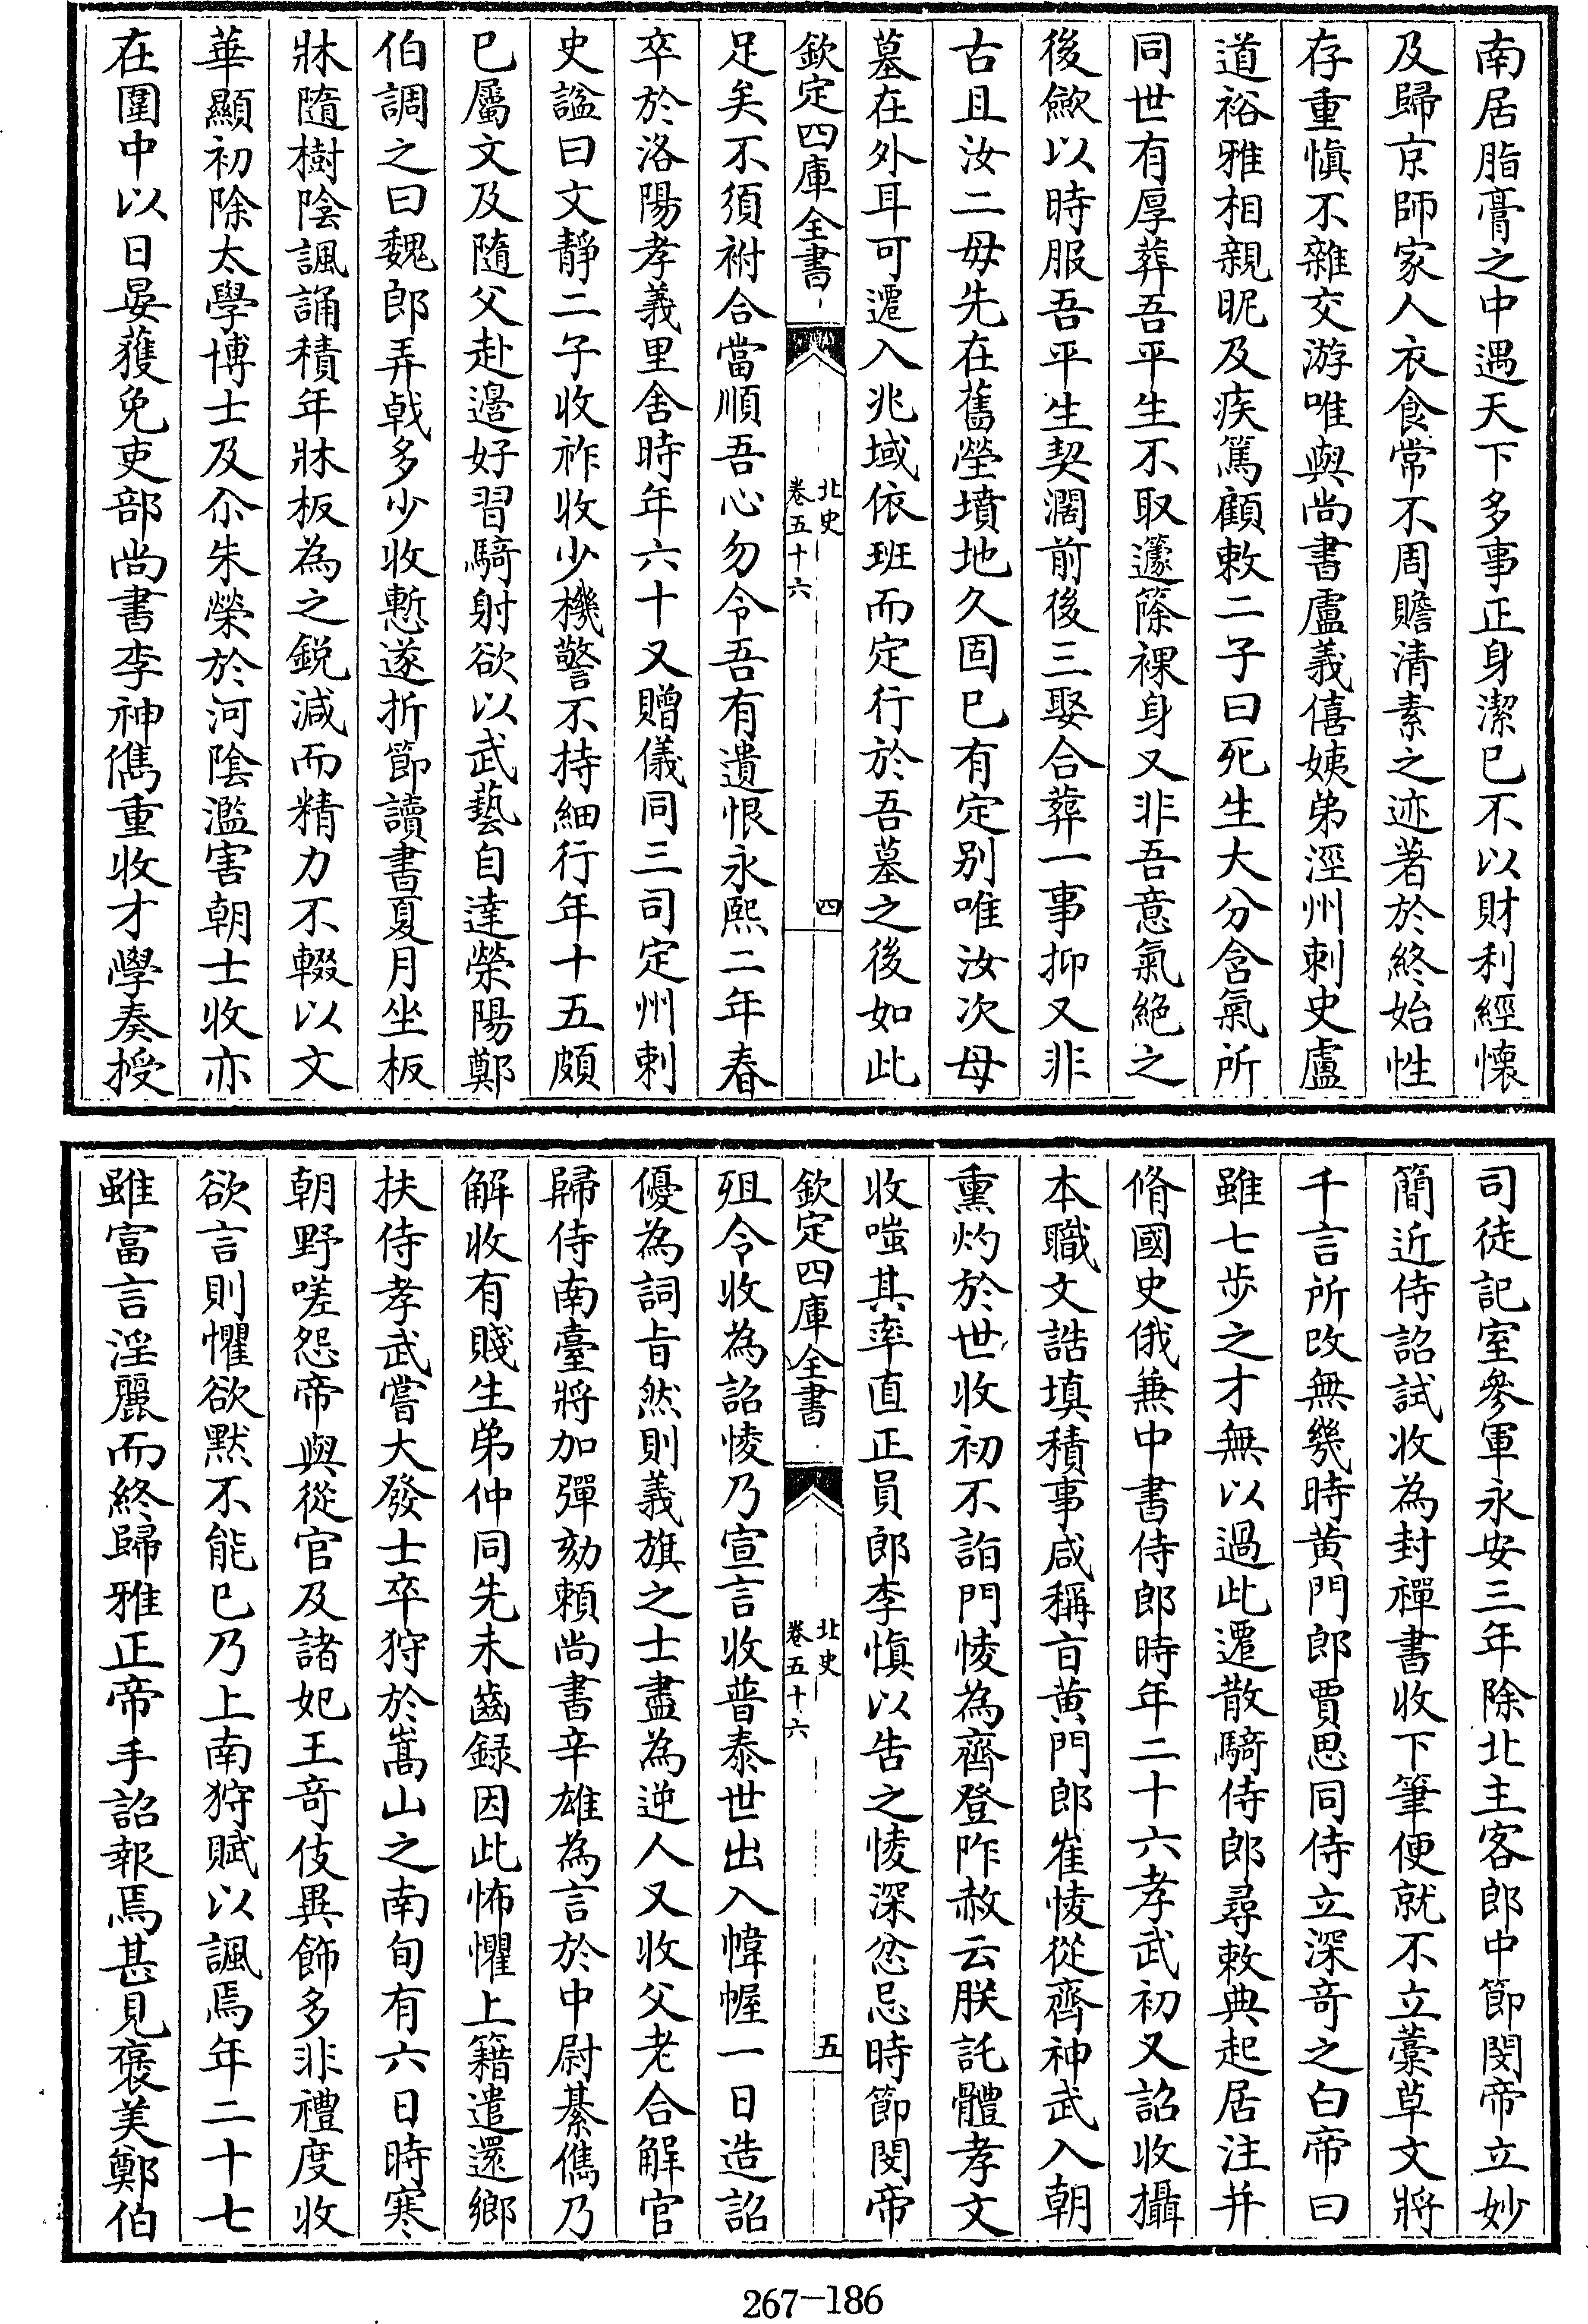 南居脂膏之中遇天下多事正身潔已不以財利經懷
及歸京師家人衣食常不周贍清素之迹著於終始性
存重慎不雜交游唯與尚書盧義僖姨弟涇州刺史盧
道裕雅相親昵及疾篤顧敕二子曰死生大分含氣所
同世有厚葬吾平生不取蘧篨裸身又非吾意氣絶之
後歛以時服吾平生契濶前後三娶合葬一事抑又非
古且汝二母先在舊塋墳地久固已有定别唯汝次母
墓在外耳可遷入兆域依班而定行於吾墓之後如此
欽定四庫全書
北史
卷五十六
四
足矣不須祔合當順吾心勿令吾有遺恨永熙二年春
卒於洛陽孝義里舍時年六十又贈儀同三司定州刺
史諡曰文靜二子收祚收少機警不持細行年十五頗
已屬文及隨父赴邊好習騎射欲以武藝自達榮陽鄭
伯調之曰魏郎弄戟多少收慙遂折節讀書夏月坐板
牀隨樹陰諷誦積年牀板為之鋭減而精力不輟以文
華顯初除太學博士及尒朱榮於河陰濫害朝士收亦
在圍中以日晏獲免吏部尚書李神儁重收才學奏授
司徒記室參軍永安三年除北主客郎中節閔帝立妙
簡近侍詔試收為封禪書收下筆便就不立藁草文將
千言所改無幾時黄門郎賈思同侍立深奇之白帝曰
雖七步之才無以過此遷散騎侍郎尋敕典起居注并
脩國史俄兼中書侍郎時年二十六孝武初又詔收攝
本職文誥填積事咸稱㫖黄門郎崔㥄從齊神武入朝
熏灼於世收初不詣門㥄為齊登阼赦云朕託體孝文
收嗤其率直正員郎李慎以告之㥄深忿忌時節閔帝
欽定四庫全書
北史
卷五十六
五
殂令收為詔㥄乃宣言收普泰世出入幃幄一日造詔
優為詞㫖然則義旗之士盡為逆人又收父老合解官
歸侍南臺將加彈劾頼尚書辛雄為言於中尉綦儁乃
解收有賤生弟仲同先未齒録因此怖懼上籍遣還鄉
扶侍孝武嘗大發士卒狩於嵩山之南旬有六日時寒
朝野嗟怨帝與從官及諸妃王奇伎異飾多非禮度收
欲言則懼欲黙不能已乃上南狩賦以諷焉年二十七
雖富言淫麗而終歸雅正帝手詔報焉甚見褒美鄭伯
267-186